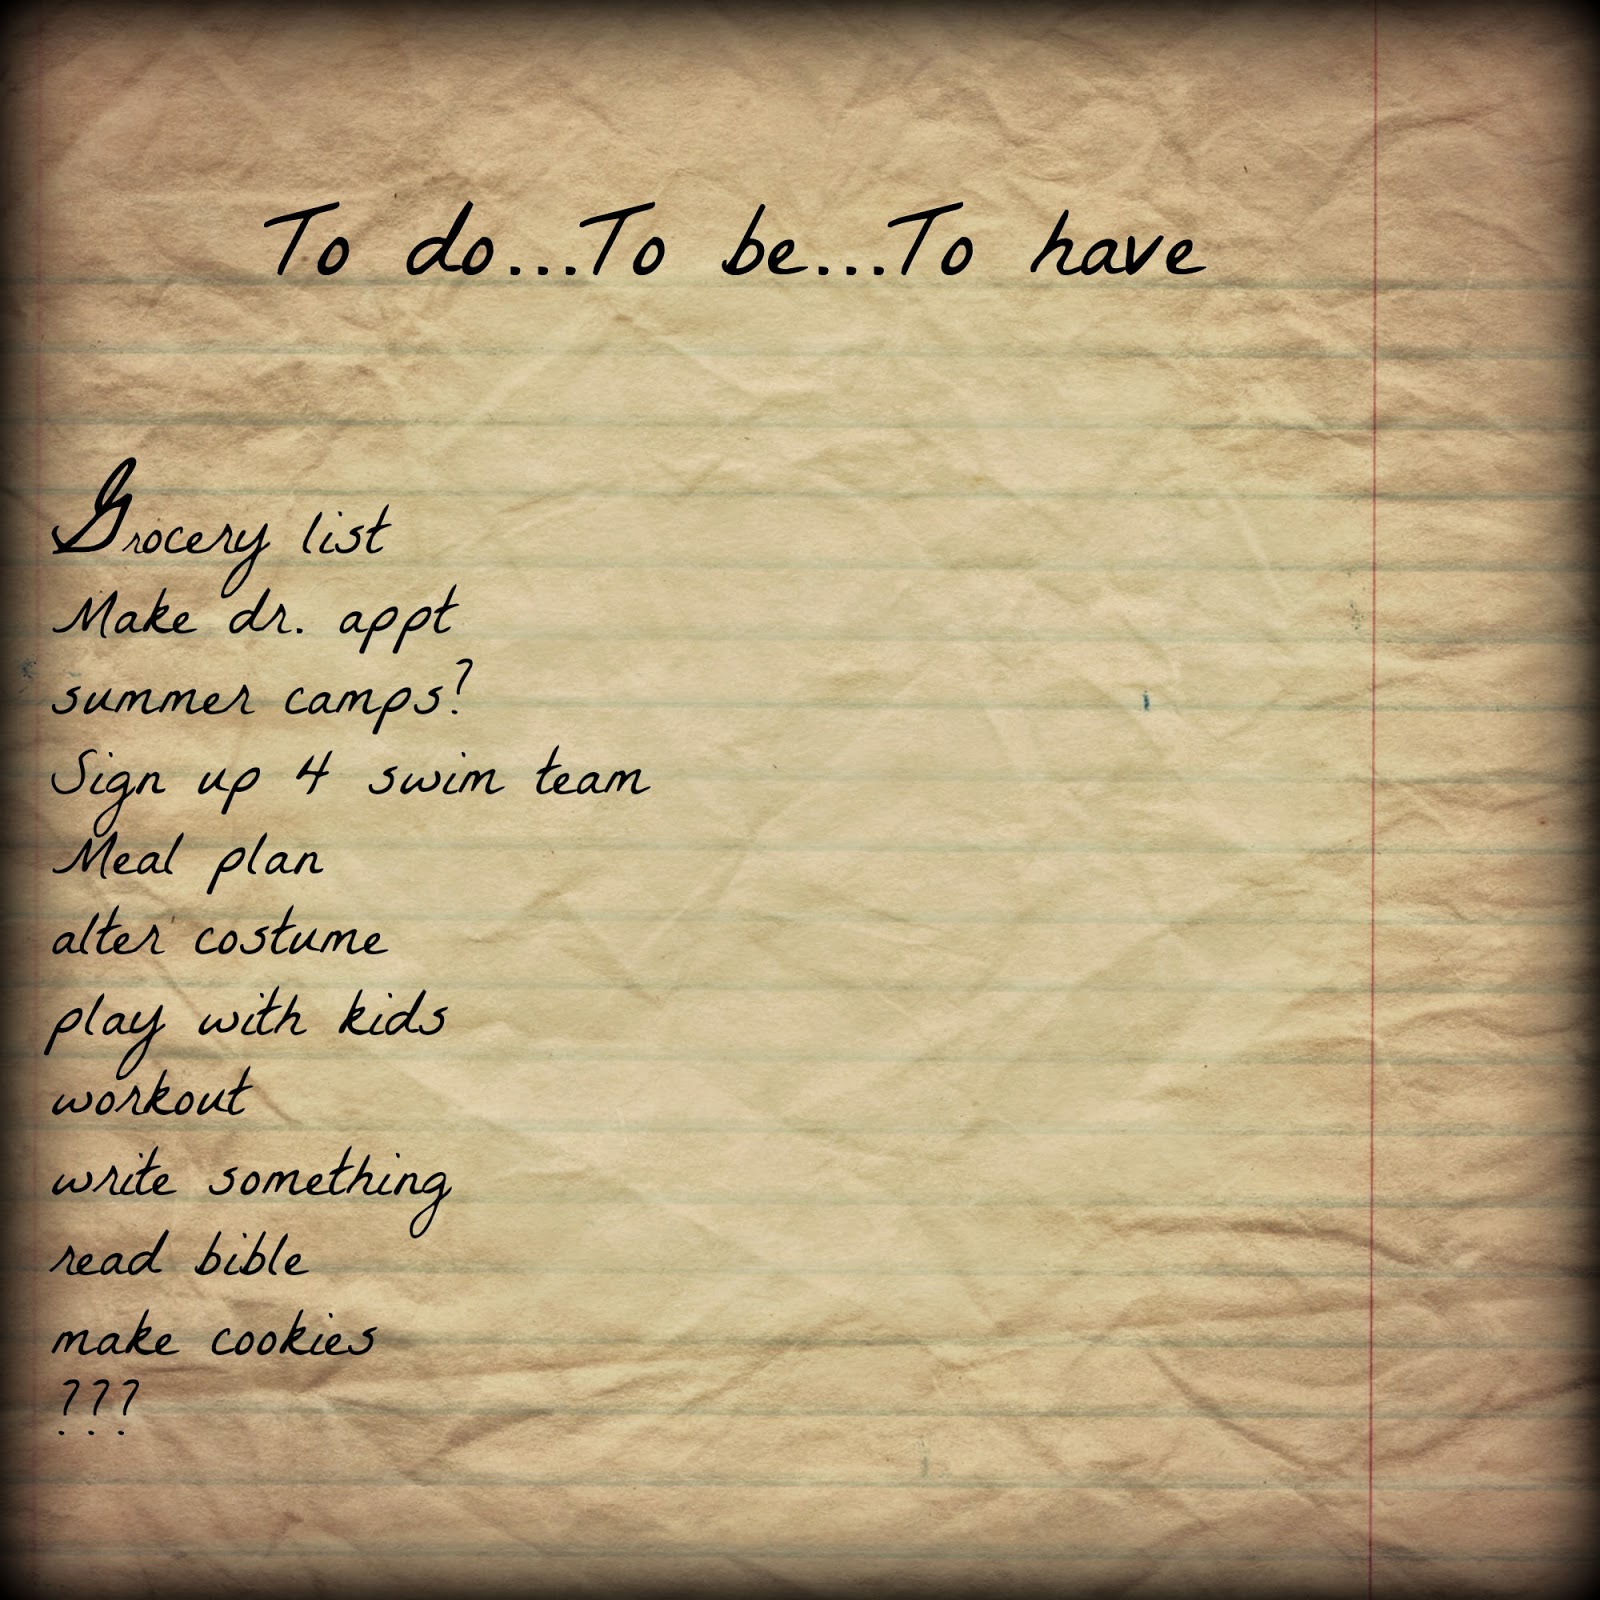 To do...To be...To have
Grocery list
Make dr. appt
summer camps?
Sign up 4 swim team
Meal plan
alter costume
play with kids
workout
write something
read bible
make cookies
???